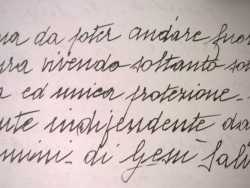 ma da poter andare fuor
ura vivendo soltanto so
a ed unica protezione.
nte indipendente da
mini di Gesù Sal